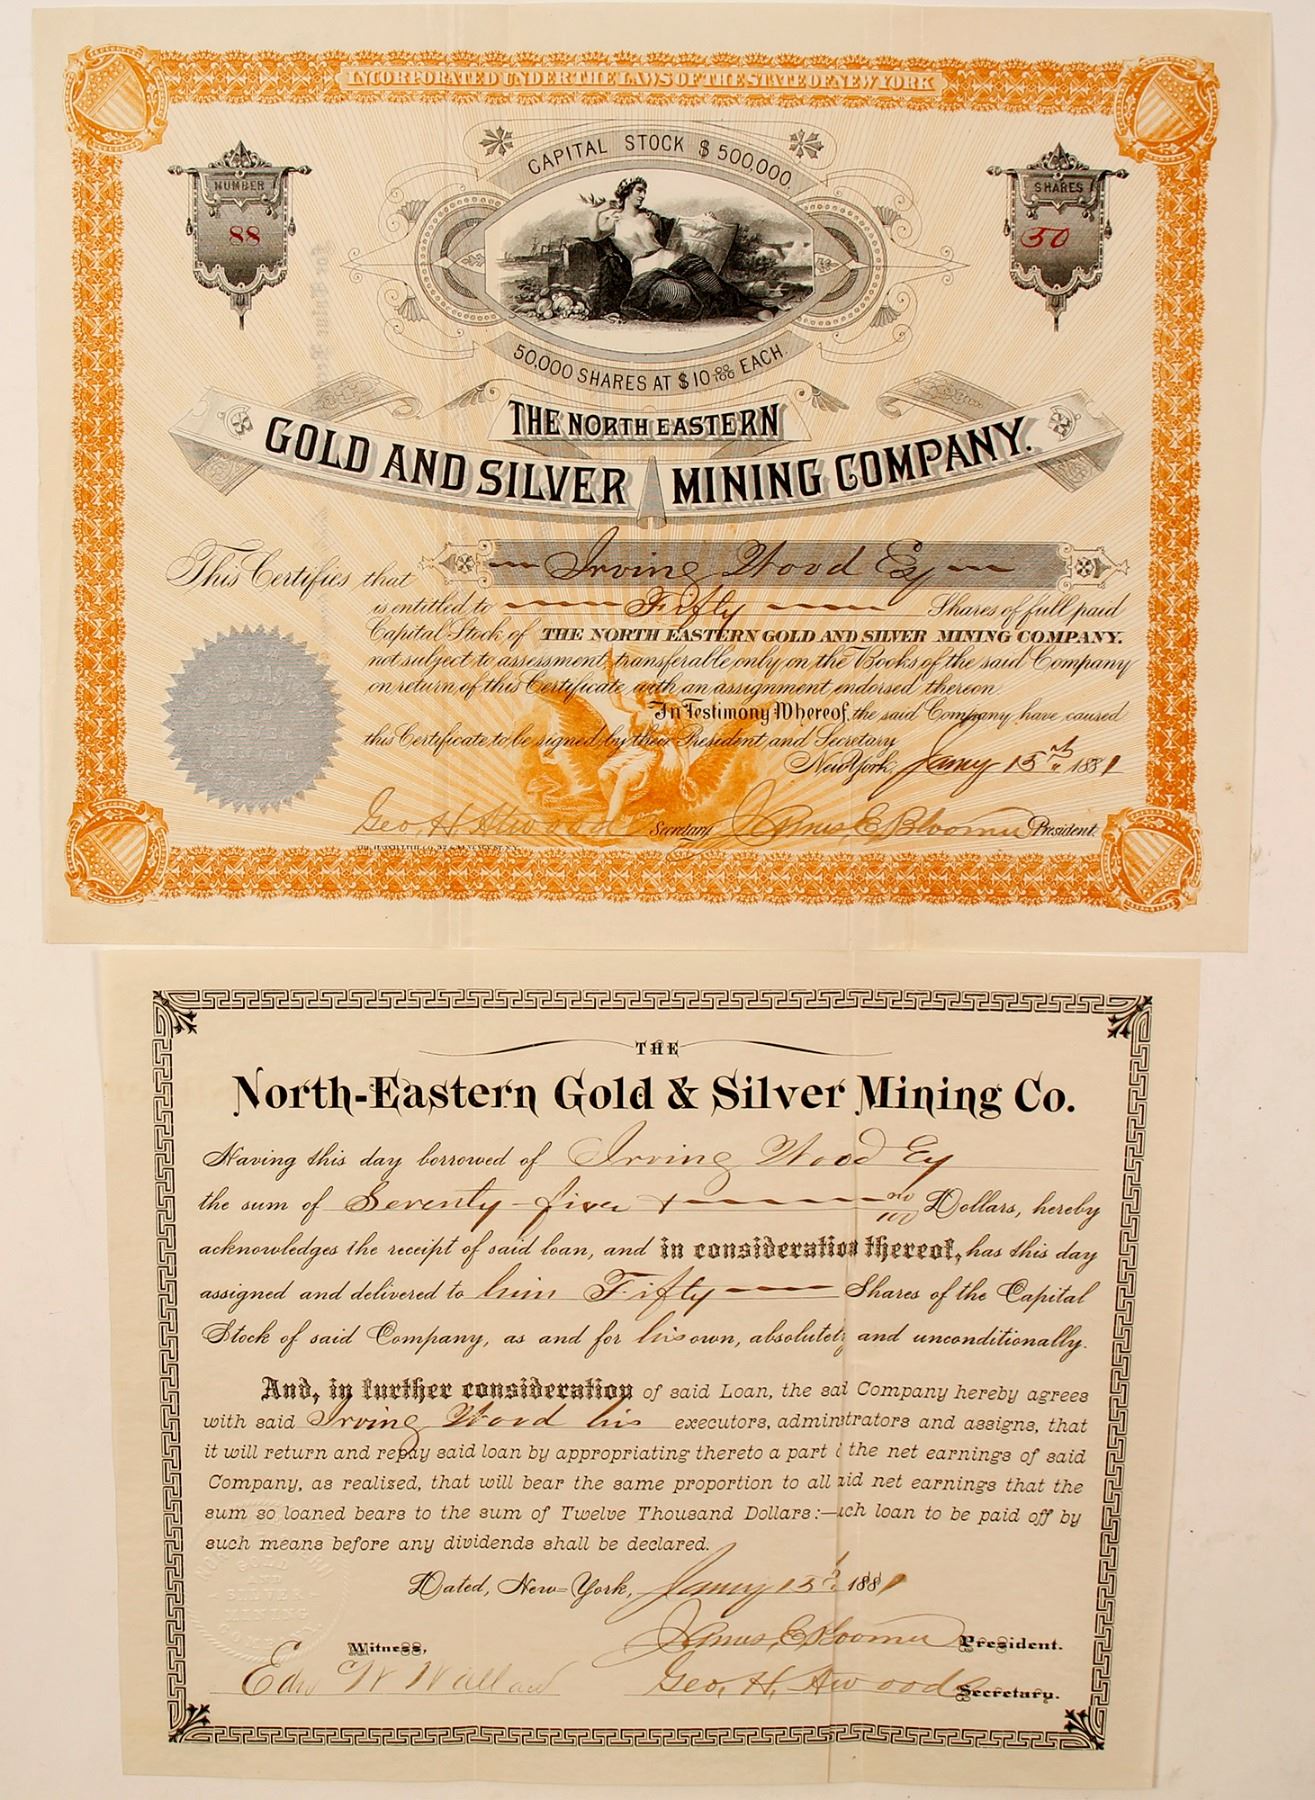 INCORPORATED UNDER THE LAWS OF THE STATE OF NEW YORK
CAPITAL STOCK $500,000.
NUMBER
88
SHARES
50
50,000 SHARES AT $10 00/100 EACH.
THE NORTH EASTERN
GOLD AND SILVER MINING COMPANY.
This Certifies that Irving Wood Esq
is entitled to Fifty Shares of full paid
Capital Stock of THE NORTH EASTERN GOLD AND SILVER MINING COMPANY.
not subject to assessment, transferable only on the Books of the said Company
on return of this Certificate with an assignment endorsed thereon.
In Testimony Whereof, the said Company have caused
this Certificate to be signed by their President and Secretary
New York, Jany 15th 1881
Geo. H. Atwood Secretary James E. Bloomer President.
THE
North-Eastern Gold & Silver Mining Co.
Having this day borrowed of Irving Wood Esq
the sum of Seventy-five + no/100 Dollars, hereby
acknowledges the receipt of said loan, and in consideration thereof, has this day
assigned and delivered to him Fifty Shares of the Capital
Stock of said Company, as and for his own, absolutely and unconditionally.
And, in further consideration of said Loan, the sai Company hereby agrees
with said Irving Wood his executors, administrators and assigns, that
it will return and repay said loan by appropriating thereto a part the net earnings of said
Company, as realised, that will bear the same proportion to all aid net earnings that the
sum so loaned bears to the sum of Twelve Thousand Dollars:—uch loan to be paid off by
such means before any dividends shall be declared.
Dated, New-York, Jany 15th 1881
GOLD
AND
SILVER
MINING
COMPANY
James E. Bloomer President.
Witness,
Edw W Wallace
Geo. H. Atwood Secretary.